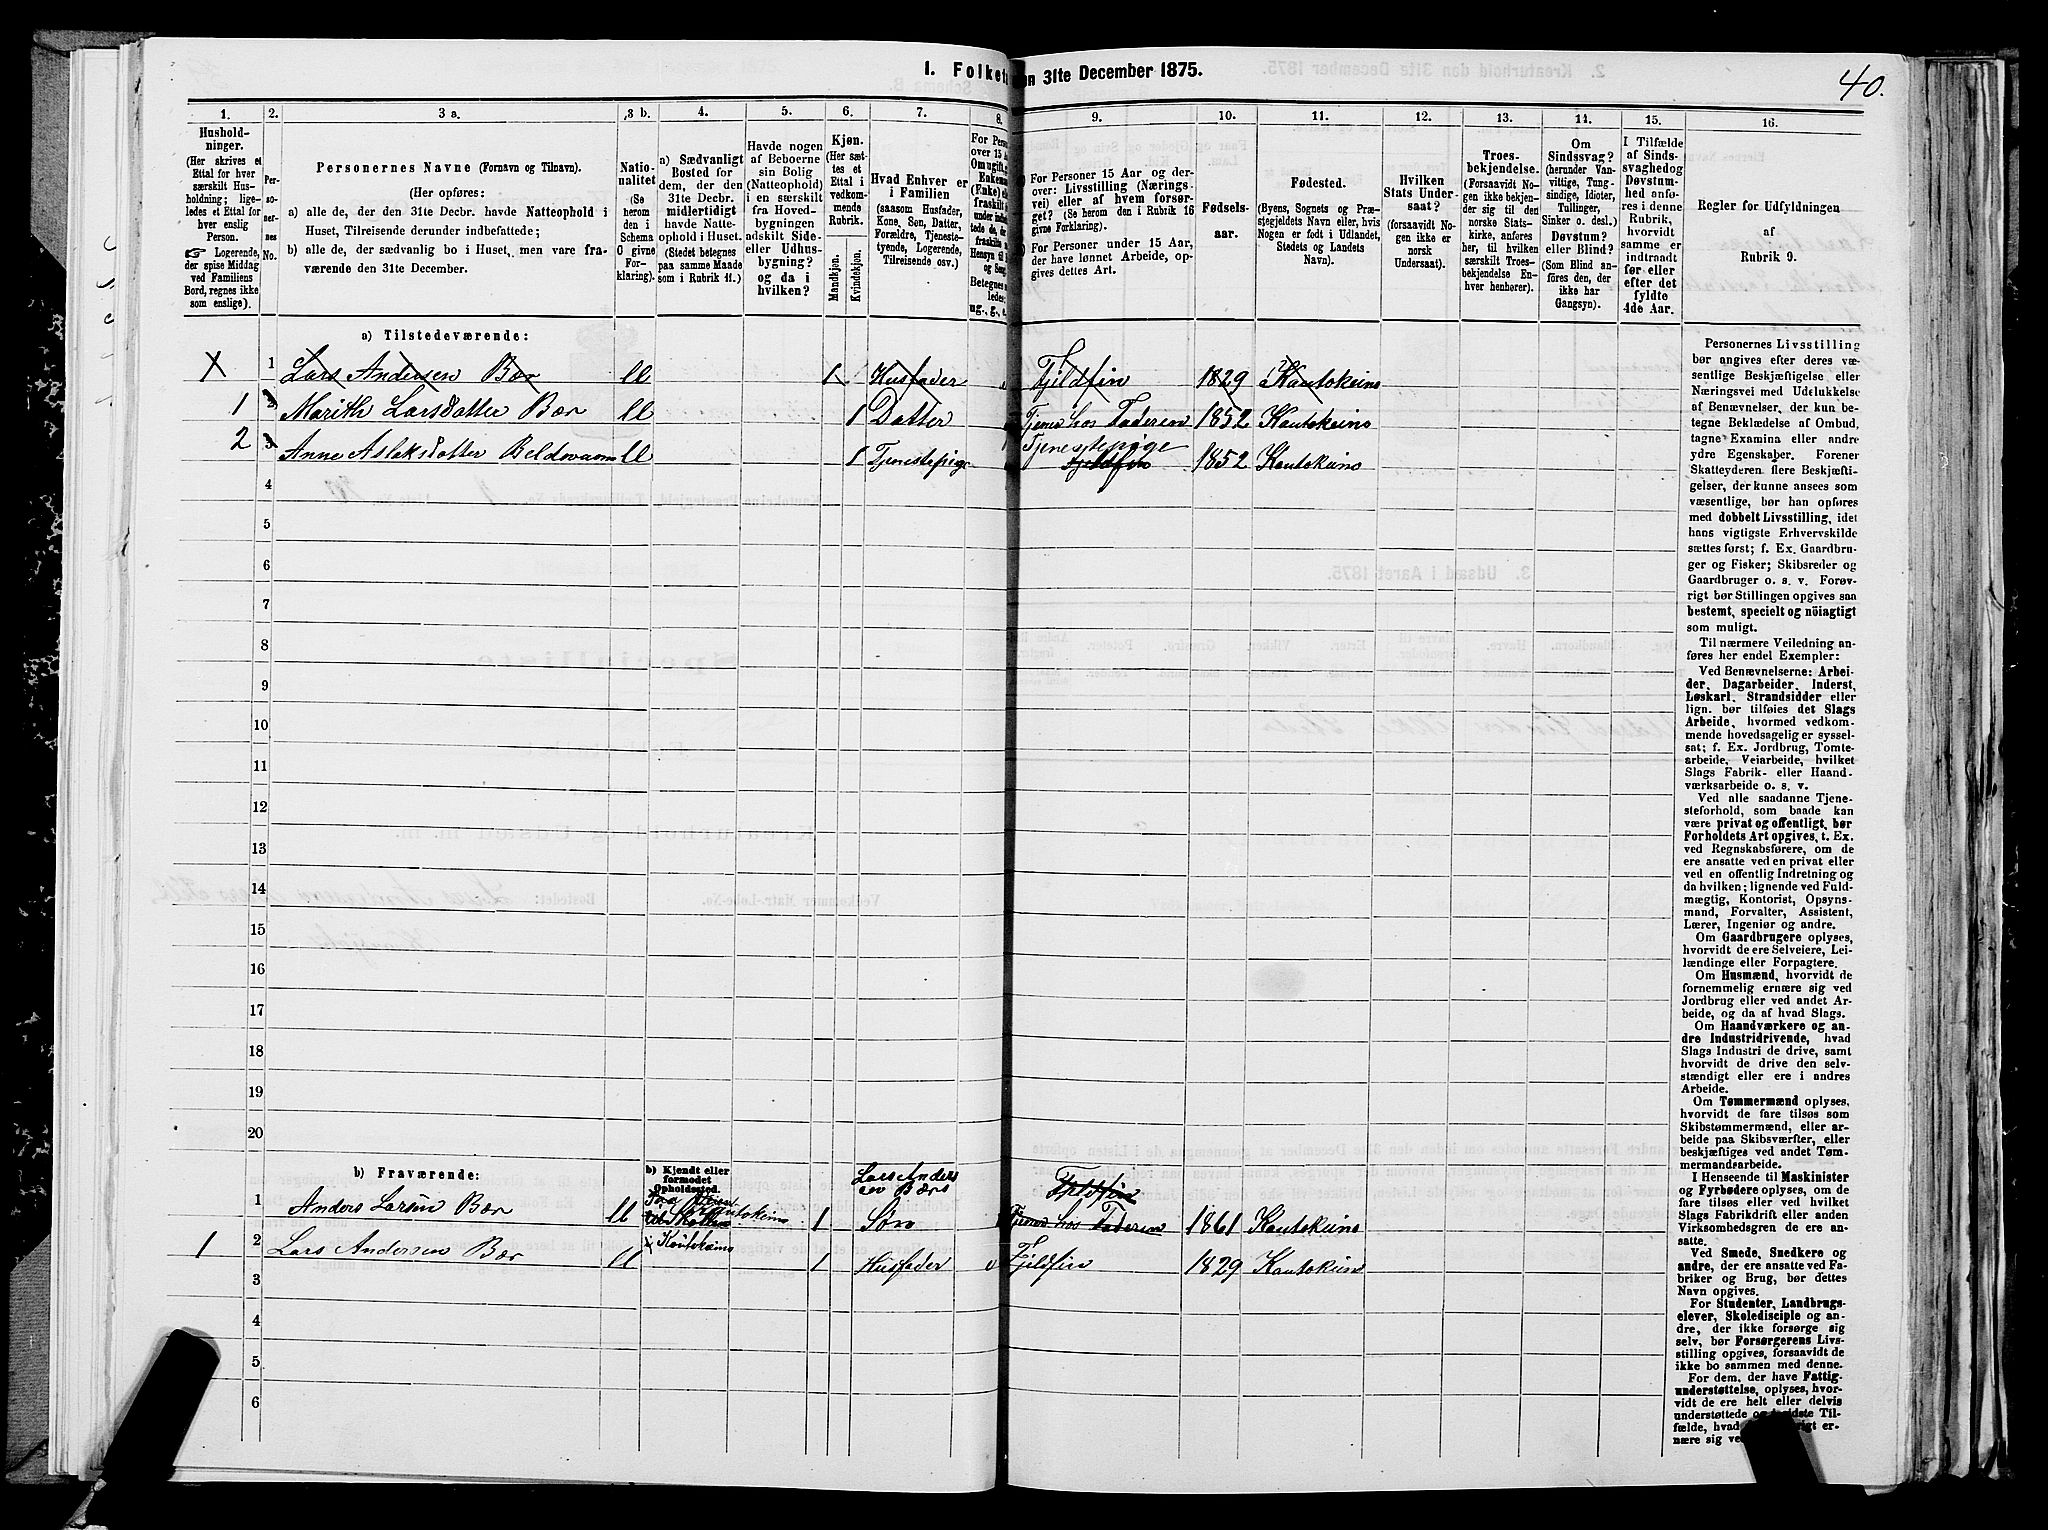 40.
1. Folket
en 31te December 1875.
1. 2. 3 a. 3 b. 4. 5. 6. 7. 8. 9. 10. 11. 12. 13. 14. 15. 16.
Hushold-
ninger.
(Her skrives et
Ettal for hver
særskilt Hus-
holdning; lige-
ledes et Ettal for
hver enslig
Person.
☞ Logerende,
der spise Middag
ved Familiens
Bord, regnes ikke
som enslige).
Per-
so-
ner-
nes
No.
Personernes Navne (Fornavn og Tilnavn).
(Her opføres:
a) alle de, der den 31te Decbr. havde Natteophold i
Huset, Tilreisende derunder indbefattede;
b) alle de, der sædvanlig bo i Huset, men vare fra-
værende den 31te December.
Natio-
nalitet
(Se
herom
den i
Schema
G givne
For-
klaring).
a) Sædvanligt
Bosted for
dem, der den
31te Decbr.
midlertidigt
havde Natte-
ophold i Huset.
(Stedet betegnes
paa samme Maade
som i Rubrik 11.)
Havde nogen
af Beboerne
sin Bolig
(Natteophold)
i en særskilt
fra Hoved-
bygningen
adskilt Side-
eller Udhus-
bygning?
og da i
hvilken?
Kjøn.
(Her sæt-
tes et
Ettal i
vedkom-
mende
Rubrik.
Mandkjøn.
Kvindekjøn.
Hvad Enhver er
i Familien
(saasom Husfader,
Kone, Søn, Datter,
Forældre, Tjeneste-
tyende, Logerende,
Tilreisende osv.)
For Pers
over 15 Aa
Om ugift,
Enkema
(Enke) el
fraskilt
ug., g., e.
For Personer 15 Aar og der-
over: Livsstilling (Nærings-
vei) eller af hvem forsør-
get? (Se herom den i Rubrik 16
givne Forklaring).
For Personer under 15 Aar,
der have lønnet Arbeide, op-
gives dettes Art.
Fødsels-
aar.
Fødested.
(Byens, Sognets og Præ-
stegjeldets Navn eller, hvis
Nogen er født i Udlandet,
Stedets og Landets
Navn).
Hvilken
Stats Under-
saat?
(forsaavidt No-
gen ikke er
norsk
Undersaat).
Troes-
bekjendelse.
(Forsaavidt No-
gen ikke bekjen-
der sig til den
norske Stats-
kirke, anføres
her, til hvilken
særskilt Troes-
bekjendelse En-
hver henhører).
Om
Sindssvag?
(herunder Van-
vittige, Tung-
sindige, Idioter,
Tullinger,
Sinker o. desl.)
Døvstum?
eller Blind?
(Som Blind an-
føres den, der
ikke har
Gangsyn).
I Tilfælde
af Sinds-
svaghed og
Døvstum-
hed anfø-
res i denne
Rubrik,
hvorvidt
samme er
indtraadt
før eller
efter det
fyldte
4de Aar.
Regler for Udfyldningen
af
Rubrik 9.
a) Tilstedeværende:
X 1 Lars Andersen Bær ll 1 Husfader Fjeldfin 1829 Kautokeino
1 2 Marith Larsdatter Bær ll 1 Datter Tjener hos Faderen 1852 Kautokeino
2 3 Anne Aslaksdatter Beldovaara ll 1 Tjenestepige Tjenestepige Fjeldfin 1852 Kautokeino
4
5
6
7
8
9
10
11
12
13
14
15
16
17
18
19
20
b) Fraværende:
b) Kjendt eller
formodet
Opholdssted.
Lars Anders
sen Bærs
Fjeldfin
1 Anders Larsen Bær ll Kautokeino 1 Søn Tjener hos Faderen 1861 Kautokeino
1 2 Lars Andersen Bær ll i Kautokeino 1 Husfader Fjeldfin 1829 Kautokeino
3
4
5
6
Personernes Livsstilling
bør angives efter deres væ-
sentlige Beskjæftigelse eller
Næringsvei med Udelukkelse
af Benævnelser, der kun be-
tegne Beklædelse af Ombud,
tagne Examina eller andre
ydre Egenskaber. Forener
Skatteyderen flere Beskjæfti-
gelser, der kunne ansees som
væsentlige, bør han opføres
med dobbelt Livsstilling, idet
hans vigtigste Erhvervskilde
sættes først; f. Ex. Gaardbru-
ger og Fisker; Skibsreder og
Gaardbruger o. s. v. Forøv-
rigt bør Stillingen opgives saa
bestemt, specielt og nöiagtigt
som muligt.
Til nærmere Veiledning an-
føres her endel Exempler:
Ved Benævnelserne: Arbei-
der, Dagarbeider, Inderst,
Løskarl, Strandsidder eller
lign. bør tilføies det Slags
Arbeide, hvormed vedkom-
mende hovedsagelig er syssel-
sat; f. Ex. Jordbrug, Tomte-
arbeide, Veiarbeide, hvilket
Slags Fabrik- eller Haand-
værksarbeide o. s. v.
Ved alle saadanne Tje-
nesteforhold, som baade kan
være privat og offentligt, bør
Forholdets Art opgives, t. Ex.
ved Regnskabsførere, om de
ere ansatte ved en privat eller
ved en offentlig Indretning og
da hvilken; lignende ved Fuld-
mægtig, Kontorist, Opsyns-
mand, Forvalter, Assistent,
Lærer, Ingeniør og andre.
Om Gaardbrugere oplyses,
hvorvidt de ere Selveiere, Lei-
lændinge eller Forpagtere.
Om Husmænd, hvorvidt de
fornemmelig ernære sig ved
Jordbrug eller ved andet Ar-
beide, og da af hvad Slags.
Om Haandværkere og an-
dre Industridrivende, hvad
Slags Industri de drive, samt
hvorvidt de drive den selv-
stændigt eller ere i andres
Arbeide.
Om Tømmermænd oplyses,
hvorvidt de fare tilsøs som
Skibstømmermænd, eller ar-
beide paa Skibsværfter, eller
beskjæftiges ved andet Tøm-
mermandsarbeide.
I Henseende til Maskinister
og Fyrbødere oplyses, om de
fare tilsøs eller ved hvilket
Slags Fabrikdrift eller anden
Virksomhedsgren de ere an-
satte.
Ved Smede, Snedkere og
andre, der ere ansatte ved Fa-
briker og Brug, bør dettes
Navn opgives.
For Studenter, Landbrugs-
elever, Skoledisciple og an-
dre, der ikke forsørge sig
selv, bør Forsørgerens Livs-
stilling opgives, forsaavidt de
ikke bo sammen med denne.
For dem, der have Fattig-
understøttelse, oplyses, hvor-
vidt de ere helt eller delvis
understøttede og i sidste Til-
fælde, hvad er-
nære sig ve